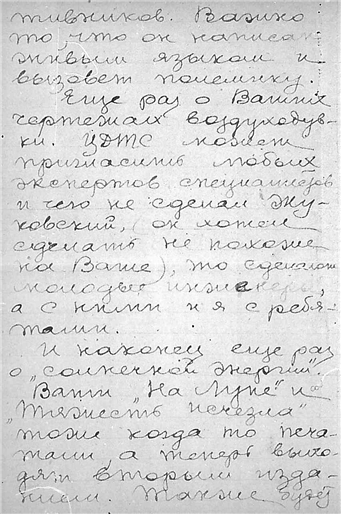 тивников. Важно
то, что он написан
живым языком и
вызовет полемику.
Еще раз о Ваших
чертежах воздуходув-
ки. ЦДТС может
пригласить любых
экспертов специалистов
и чего не сделал Жу-
ковский, (он хотел
сделать не похоже
на Ваше), то сделают
молодые инженеры,
а с ними и я с ребя-
тами.
И наконец еще раз
о „солнечной энергии".
Ваши „На Луне" и
„Тяжесть исчезла"
тоже когда то печа-
тали, а теперь выхо-
дят вторым изда-
нием. Также будет